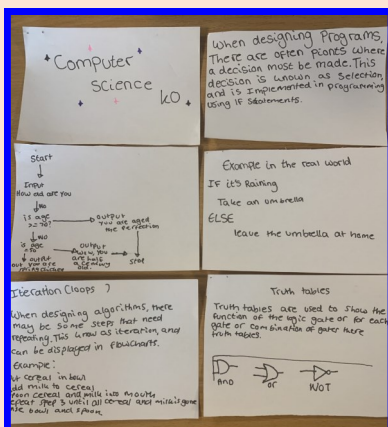 Computer
Science
KO
When designing Programs,
There are often Piones where
a decision most be made. This
decision is known as Selection
and is Implemented in programming
using IF Statements.
Start
Input
How old are you
no
is age
>= 70?
output
you are aged
the perfection
no
is age
output
wow, you
are half
a century
old.
Stop
output
you are
Spring chicken
Example in the real world
IF it's Raining
Take an umbrella
ELSE
leave the umbrella at home
Iteration (loops)
When designing algorithms, there
may be some steps that need
repeating. This know as iteration, and
can be displayed in flowcharts.
Example:
ut cereal in bowl
dd milk to cereal
poon cereal and milk into mouth
epeat step 3 until all cereal and milk is gone
bowl and spoon.
Truth tables
Truth tables are used to show the
function of the logic gate or for each
gate or combination of gates there
truth tables.
AND
or
NOT